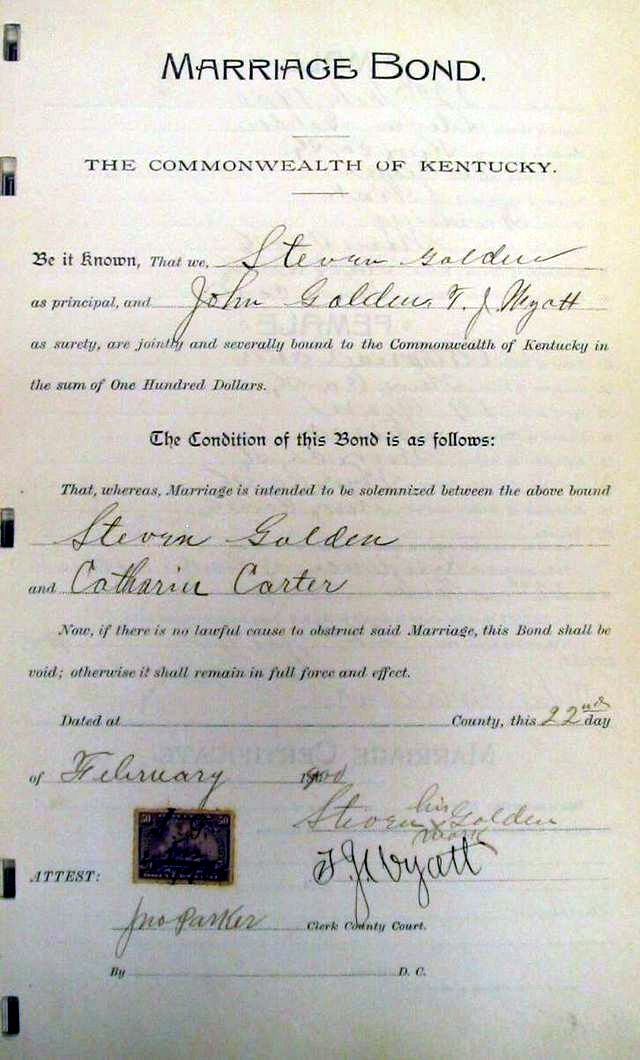 MARRIAGE BOND.
THE COMMONWEALTH OF KENTUCKY.
Be it known, That we, Steven Golden
as principal, and John Golden, T. J Wyatt
as surety, are jointly and severally bound to the Commonwealth of Kentucky in
the sum of One Hundred Dollars.
The Condition of this Bond is as follows:
That, whereas, Marriage is intended to be solemnized between the above bound
Steven Golden
and Catharin Carter
Now, if there is no lawful cause to obstruct said Marriage, this Bond shall be
void; otherwise it shall remain in full force and effect.
Dated at County, this 22nd day
of February 1900
his
Steven x Golden
mark
T J Wyatt
ATTEST:
Jno Parker Clerk County Court.
By D. C.